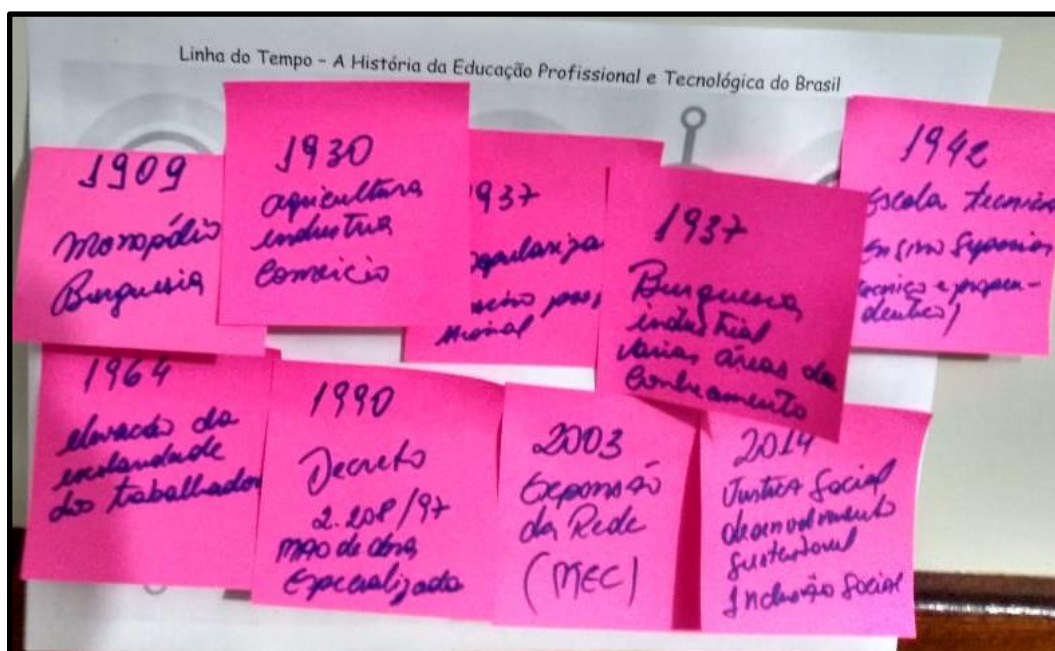 Linha do Tempo - A História da Educação Profissional e Tecnológica do Brasil
1909
Monopólio
Burguesia
1930
agricultura
industria
Comércio
937
sional
1937
Burguesia
industrial
várias áreas do
Conhecimento
1942
Escola tecnica
Ensino Superior
deutico)
1964
elevação da
escolaridade
dos trabalhador
1990
Decreto
2.208/97
mão de obra
Especializada
2003
Expansão
da Rede
(MEC)
2014
Justiça Social
desenvolvimento
Sustentavel
Inclusão Social